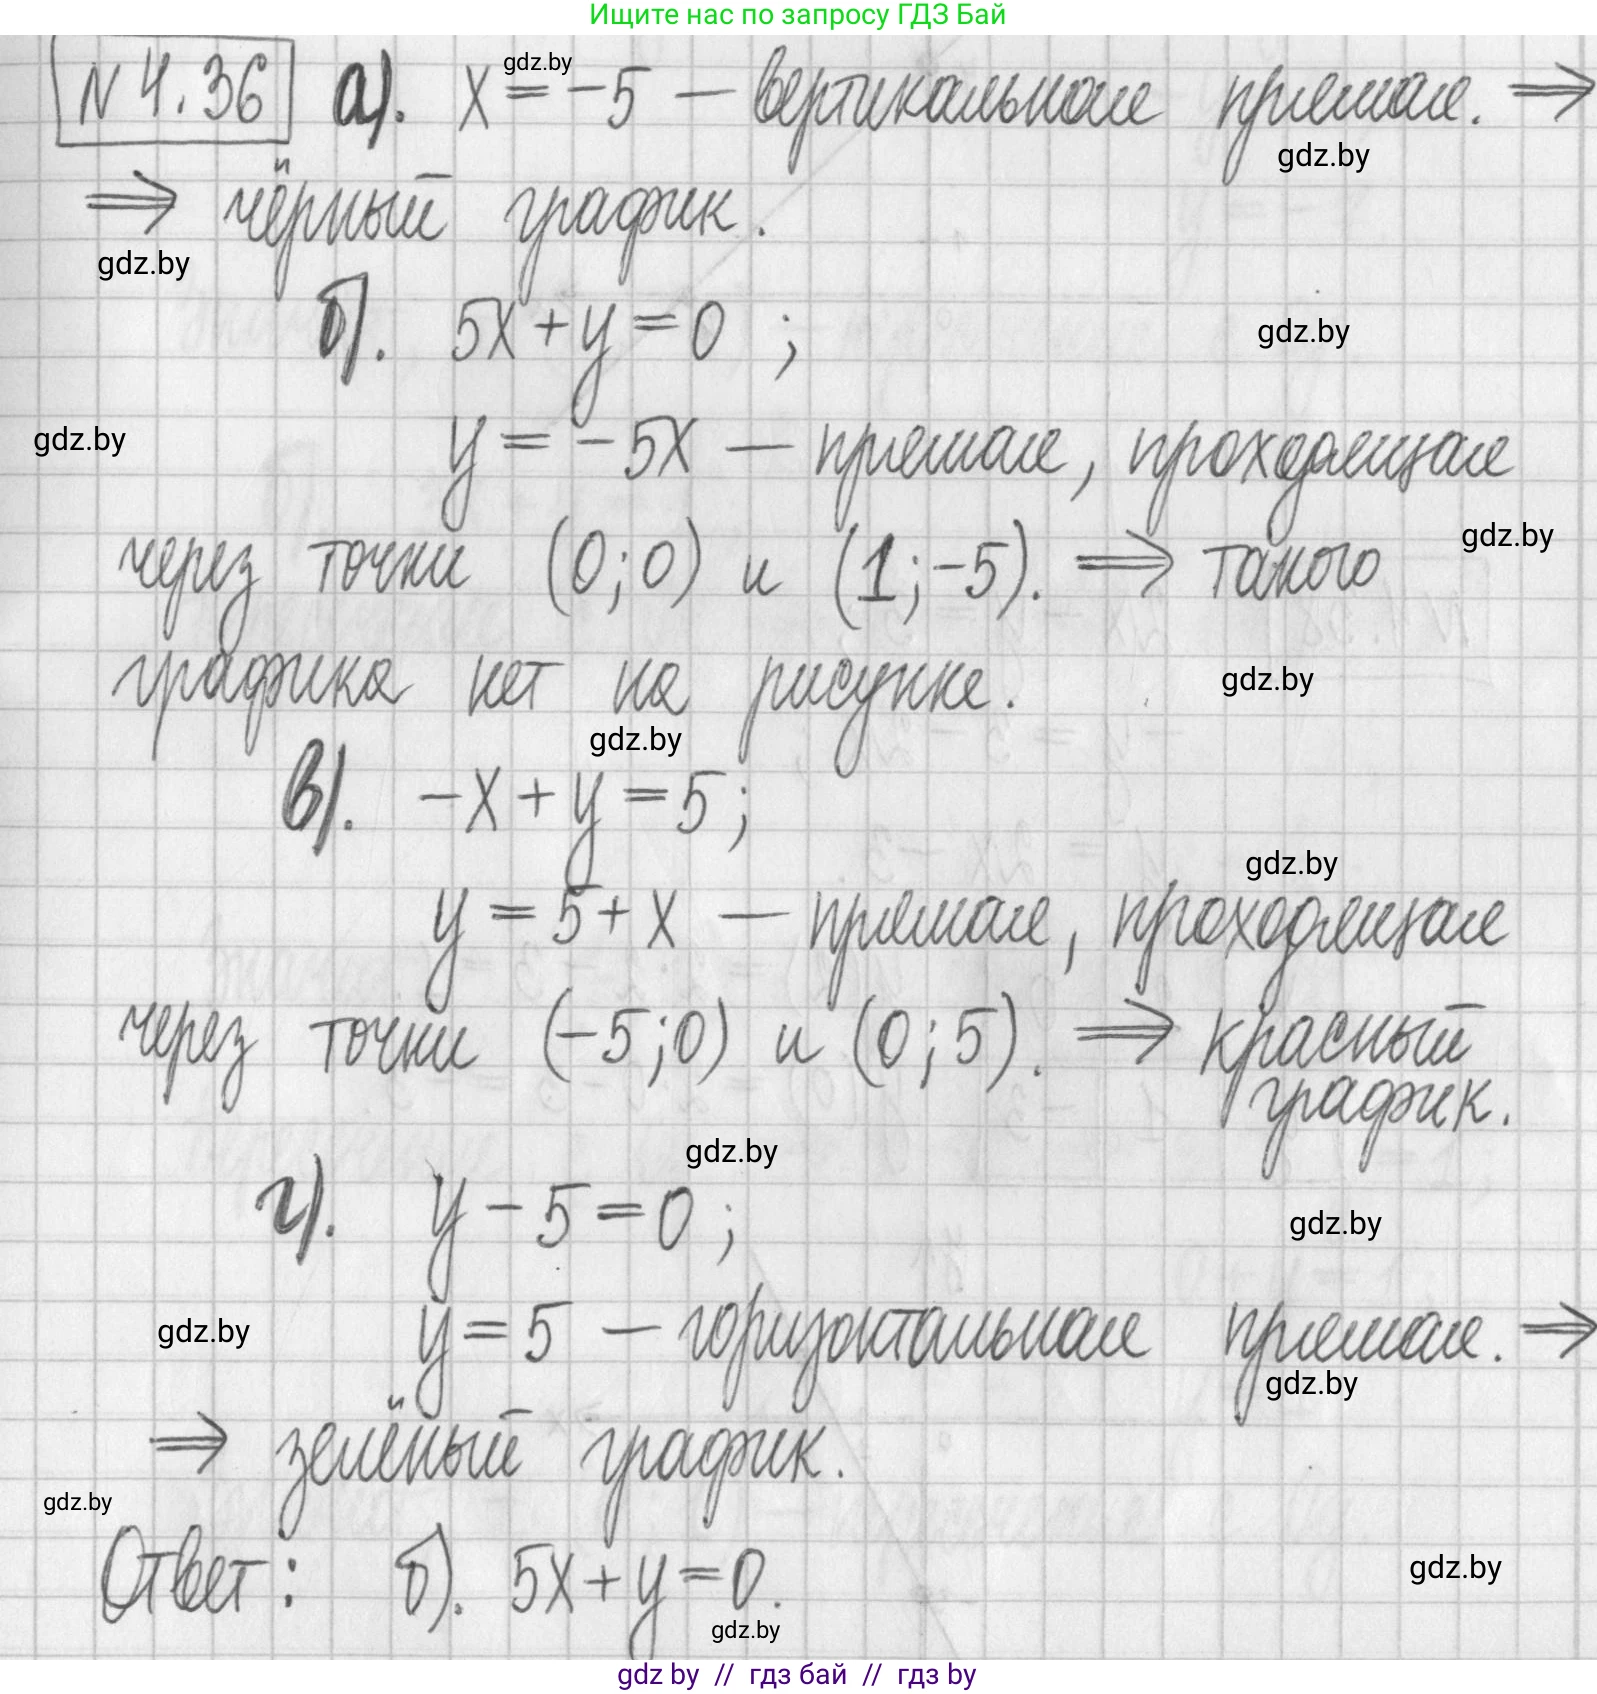 Ищите нас по запросу ГДЗ Бай
№ 4.36 а). x = -5 — вертикальная прямая. ⇒
gdz.by
gdz.by
⇒ чёрный график.
gdz.by
б). 5x + y = 0 ;
gdz.by
gdz.by
y = -5x — прямая, проходящая
gdz.by
через точки (0;0) и (1;-5). ⇒ такого
графика нет на рисунке.
gdz.by
gdz.by
в). -x + y = 5;
gdz.by
y = 5 + x — прямая, проходящая
через точки (-5;0) и (0;5). ⇒ красный
график.
gdz.by
г). y - 5 = 0 ;
gdz.by
gdz.by
y = 5 — горизонтальная прямая. ⇒
gdz.by
⇒ зелёный график.
gdz.by
Ответ: б). 5x + y = 0.
gdz.by
gdz.by
gdz by // гдз бай // гдз by